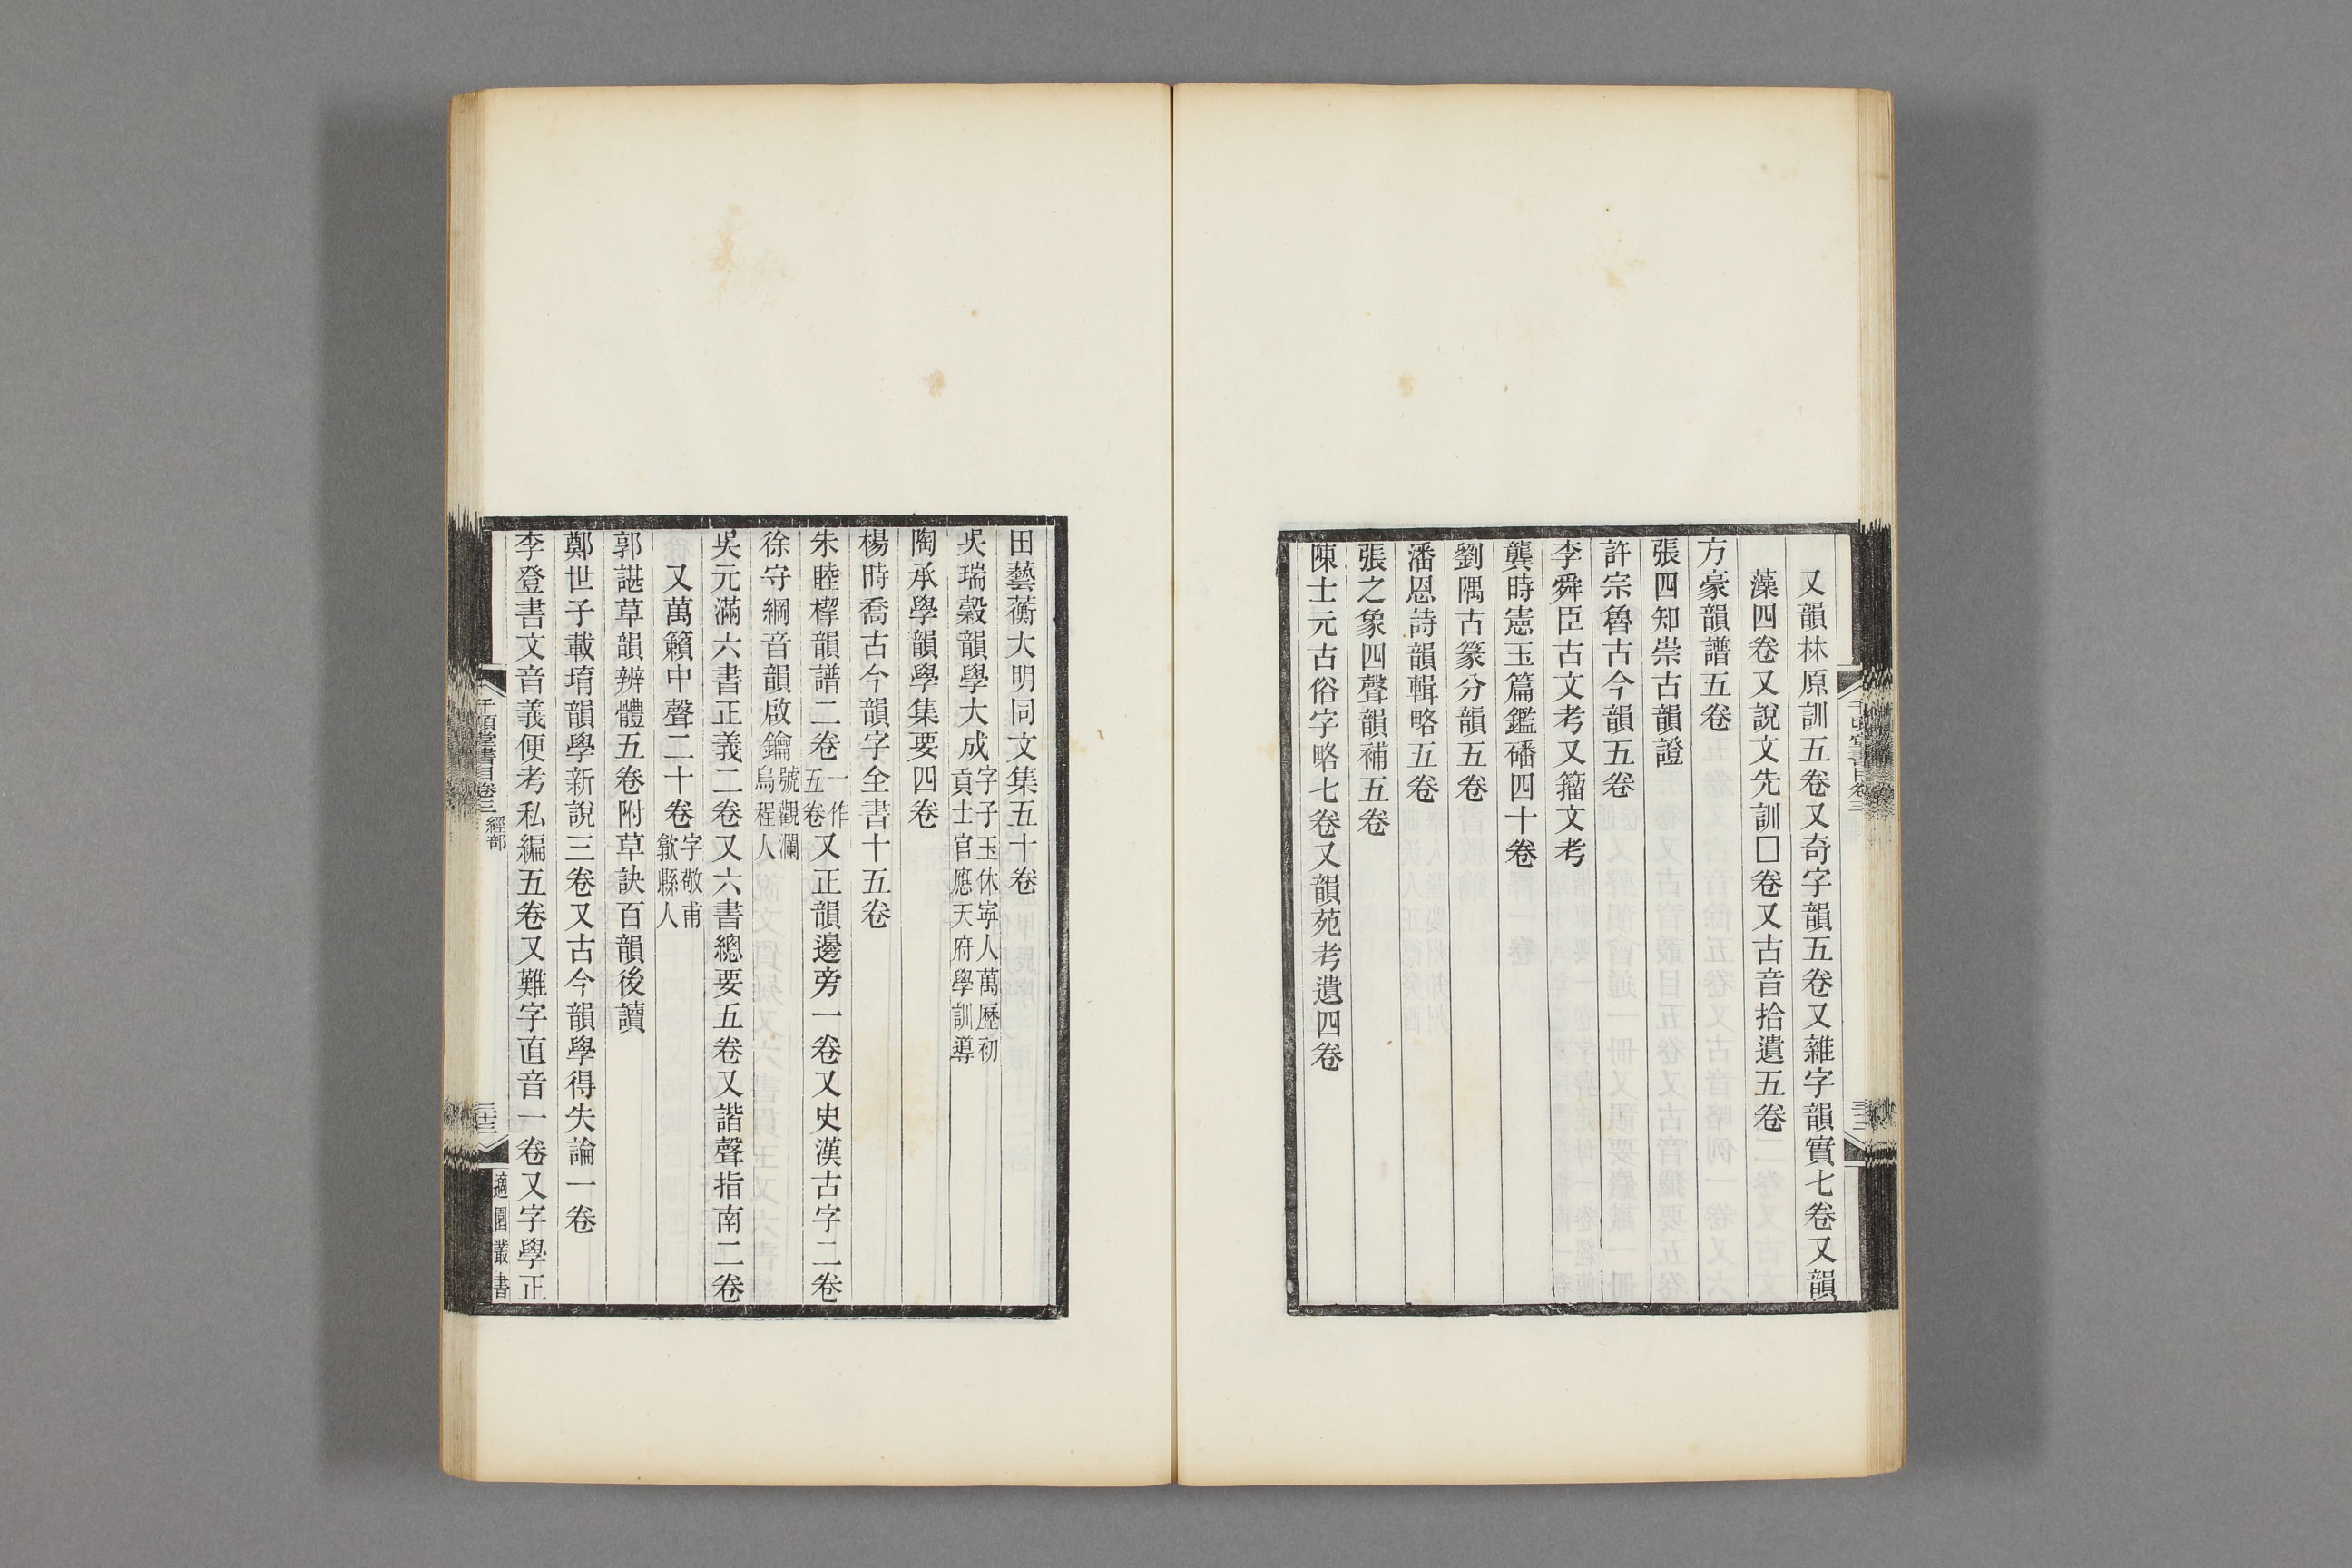 又韻林原訓五卷又奇字韻五卷又雜字韻寶七卷又韻
藻四卷又說文先訓□卷又古音拾遺五卷
方豪韻譜五卷
張四知崇古韻證
許宗魯古今韻五卷
李舜臣古文考又籀文考
龔時憲玉篇鑑磻四十卷
劉隅古篆分韻五卷
潘恩詩韻輯略五卷
張之象四聲韻補五卷
陳士元古俗字略七卷又韻苑考遺四卷
田藝蘅大明同文集五十卷
吳瑞穀韻學大成字子玉休寧人萬歷初貢士官應天府學訓導
陶承學韻學集要四卷
楊時喬古今韻字全書十五卷
朱睦㮮韻譜二卷一作五卷又正韻邊旁一卷又史漢古字二卷
徐守綱音韻啟鑰號觀瀾烏程人
吳元滿六書正義二卷又六書總要五卷又諧聲指南二卷
又萬籟中聲二十卷字敬甫歙縣人
郭諶草韻辨體五卷附草訣百韻後讀
鄭世子載堉韻學新說三卷又古今韻學得失論一卷
李登書文音義便考私編五卷又難字直音一卷又字學正
千頃堂書目卷三 經部
三十三
適園叢書